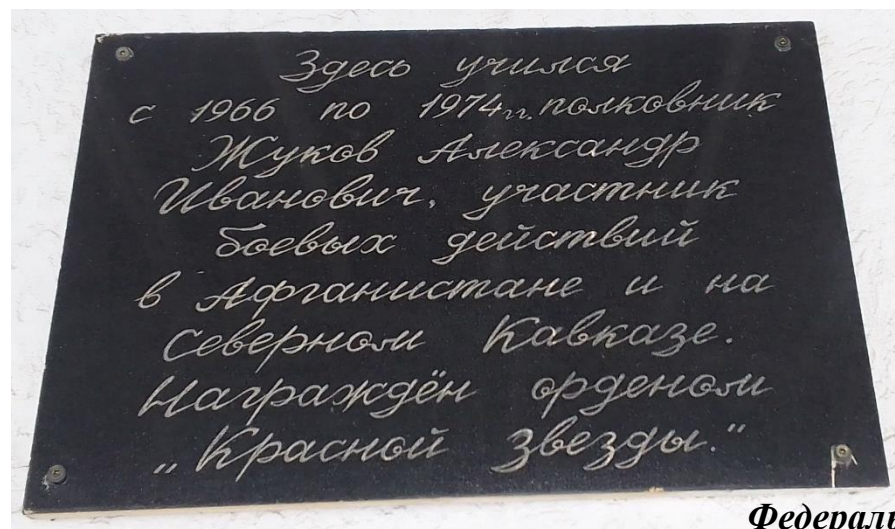 Здесь учился
с 1966 по 1974г.г. полковник
Жуков Александр
Иванович, участник
боевых действий
в Афганистане и на
Северном Кавказе.
Награждён орденом
„Красной Звезды."